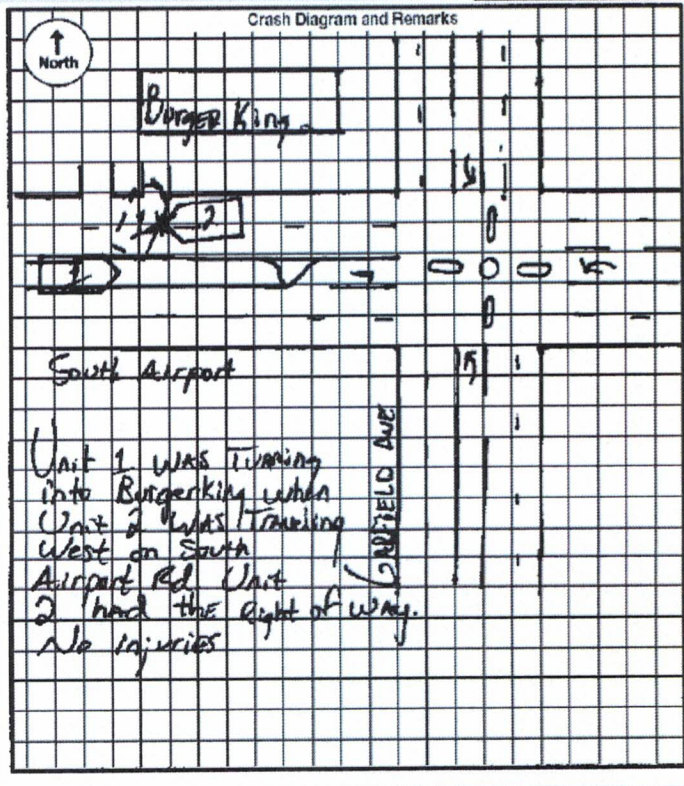 Crash Diagram and Remarks
North
Burger King
2
1
South Airport
GARFIELD AVE
Unit 1 WAS Turning
into Burgerking when
Unit 2 WAS Traveling
West on South
Airport Rd Unit
2 had the Right of Way.
No injuries